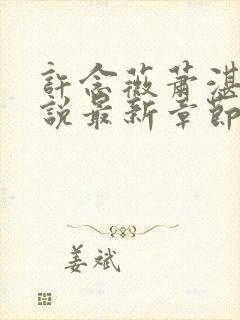 許念薇蕭湛
說最新章節
姜斌